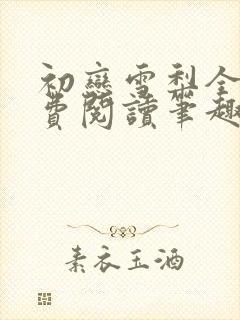 初戀雪利全
費閱讀筆趣
素衣玉酒